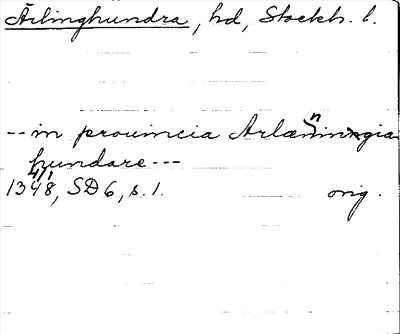 Ärlinghundra, hd, Stockh. l.
-- in prouincia Arlænningia
hundare ---
1348, SD 6, s. 1. orig.